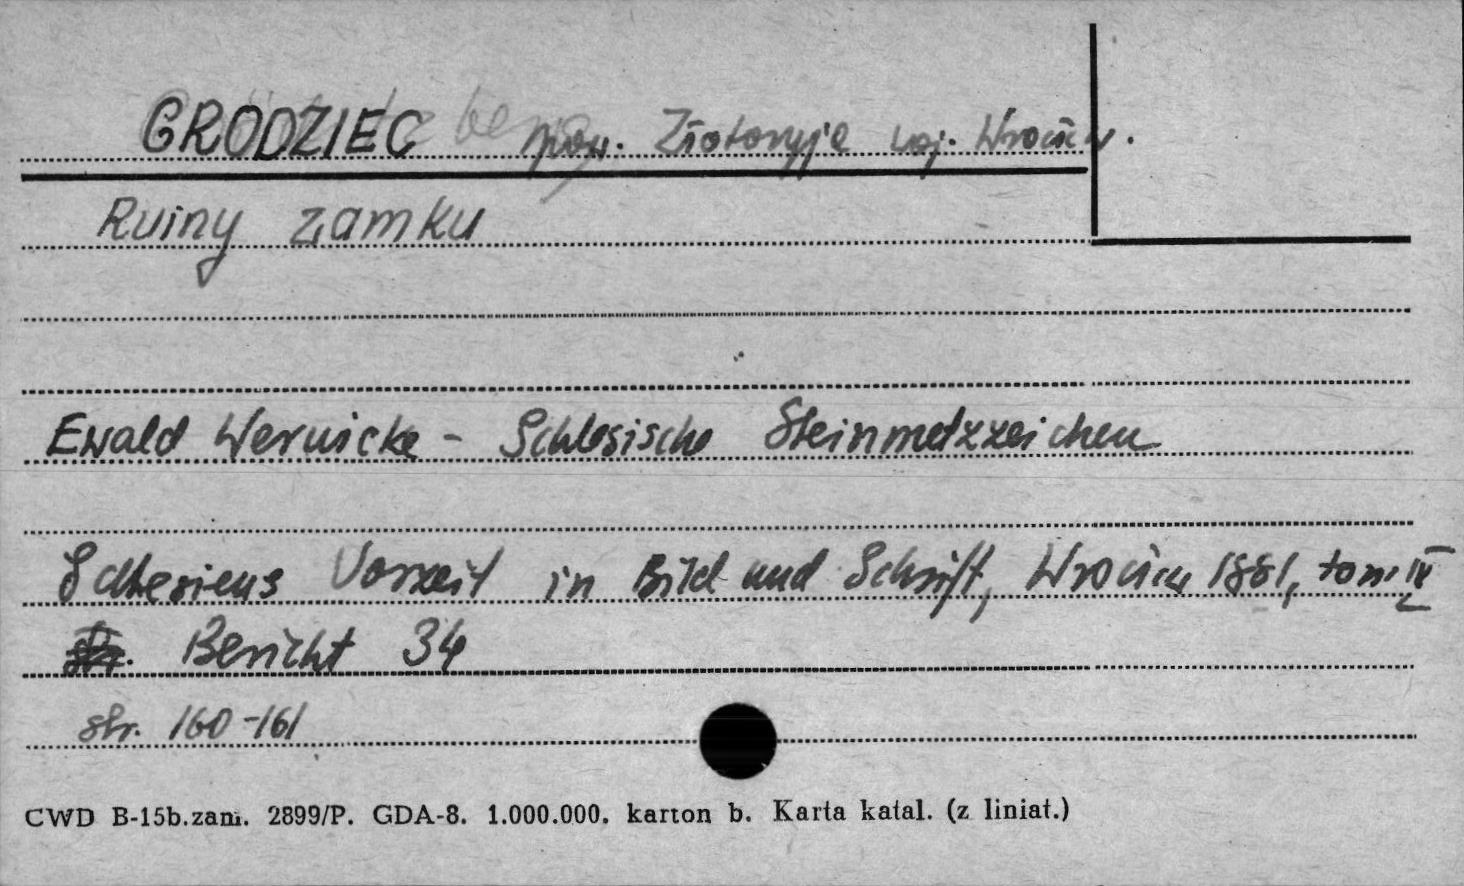 GRODZIEC pow. Złotoryja woj. Wrocław.
Ruiny zamku
Ewald Wernicke - Schlesische Steinmetzzeichen
Schlesiens Vorzeit in Bild und Schrift, Wrocław 1881, tom III
Bericht 34
str. 160-161
CWD B-15b.zam. 2899/P. GDA-8. 1.000.000. karton b. Karta katal. (z liniat.)